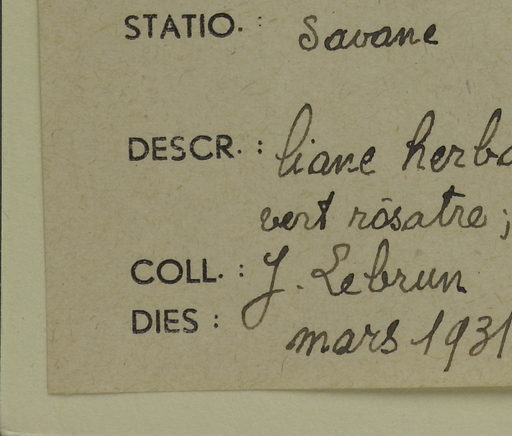 STATIO. : Savane
DESCR. : liane herba
vert rosatre ;
COLL. : J. Lebrun
DIES : mars 1931